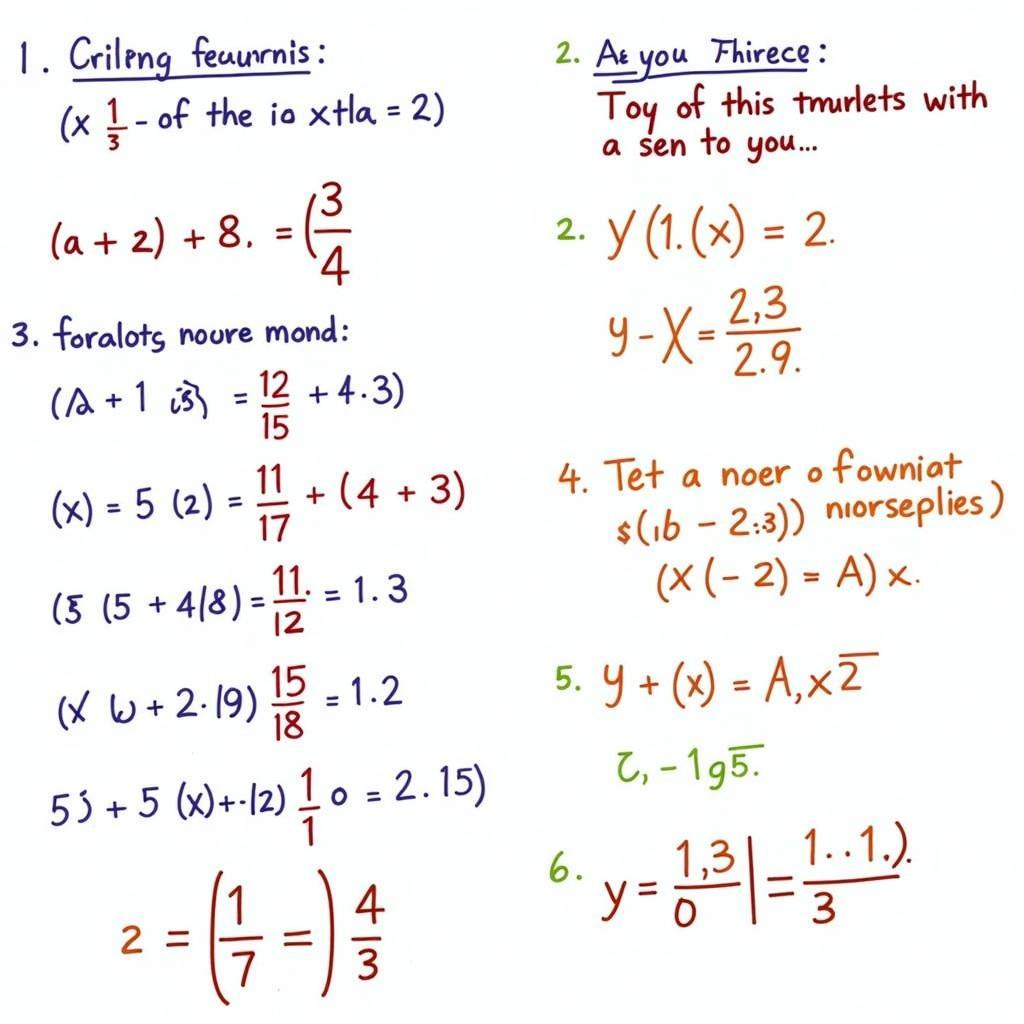 1. Crilpng feuurnis:
(x 1/3 - of the io xtla = 2)
(a + 2) + 8. = (3/4
3. foralots noure mond:
(A + 1 = 12/15 + 4.3)
(x) = 5 (2) = 11/17 + (4 + 3)
(5 (5 + 4/8) = 11./12 = 1.3
(x + 2.19) 15/18 = 1.2
5 + 5 (x)+-12) 1/1 o = 2.15)
2 = (1/7 =) 4/3
2. As you Fhirece:
Toy of this tmurlets with
a sen to you...
2. y(1.(x) = 2.
y - X = 2,3/2.9.
4. Tet a noer o fowniat
$(ib - 2:3)) niorseplies)
(x (- 2) = A) x.
5. y + (x) = A,x2̅
6. y = 1,3/0 | = 1..1.)./3